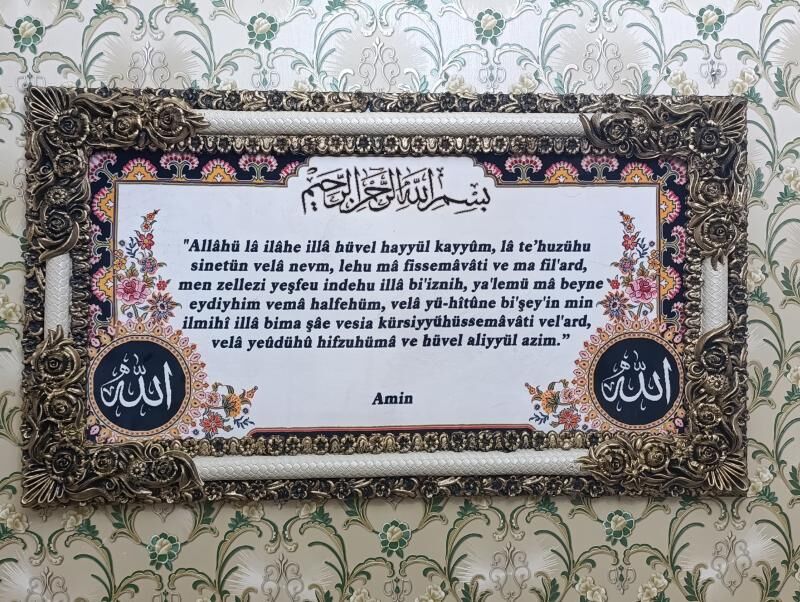 بسم الله الرحمن الرحيم
"Allâhü lâ ilâhe illâ hüvel hayyül kayyûm, lâ te’huzühu
sinetün velâ nevm, lehu mâ fissemâvâti ve ma fil'ard,
men zellezi yeşfeu indehu illâ bi'iznih, ya'lemü mâ beyne
eydiyhim vemâ halfehüm, velâ yü-hîtûne bi'şey'in min
ilmihî illâ bima şâe vesia kürsiyyühüssemâvâti vel'ard,
velâ yeûdühû hifzuhümâ ve hüvel aliyyül azim.”
الله
الله
Amin